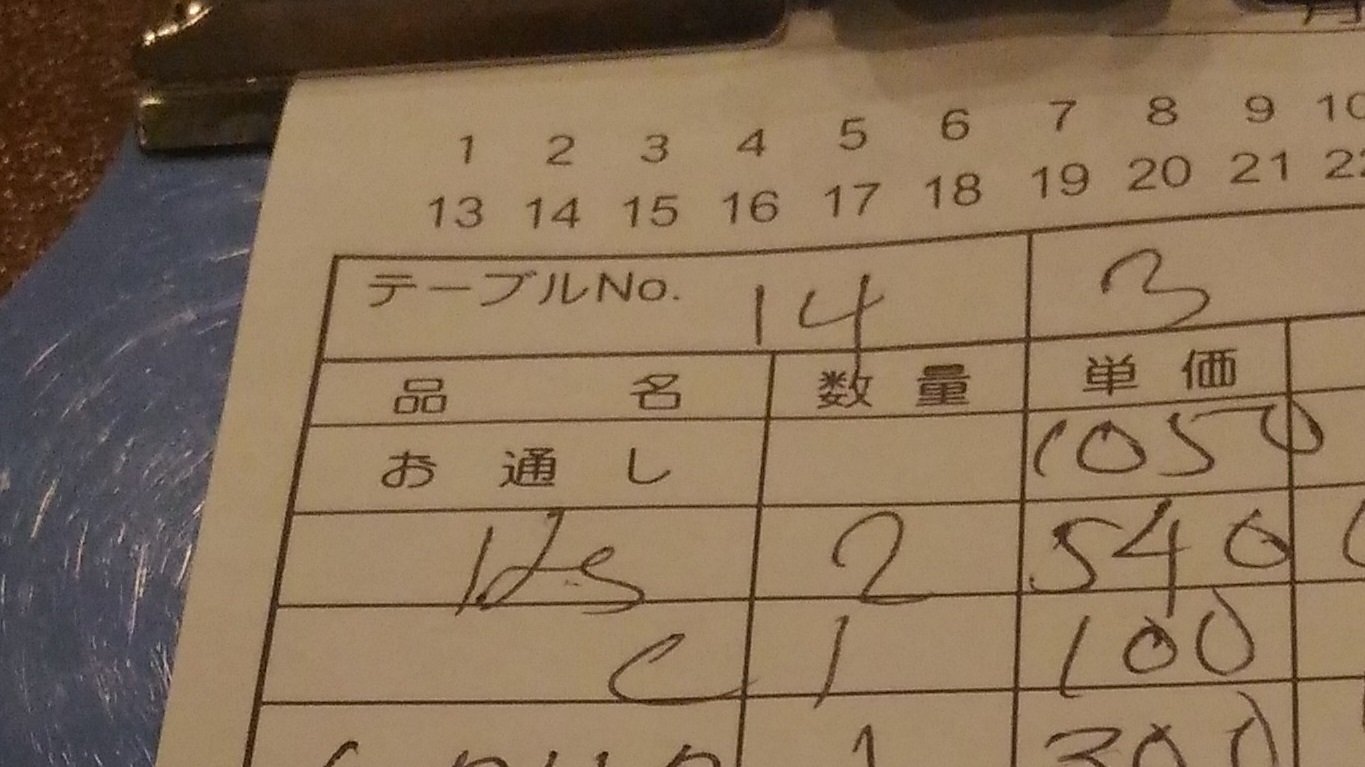 1 2 3 4 5 6 7 8 9 10
13 14 15 16 17 18 19 20 21 22
テーブルNo. 14 3
品名 数量 単価
お通し 1050
2 540
C 1 100
1 300